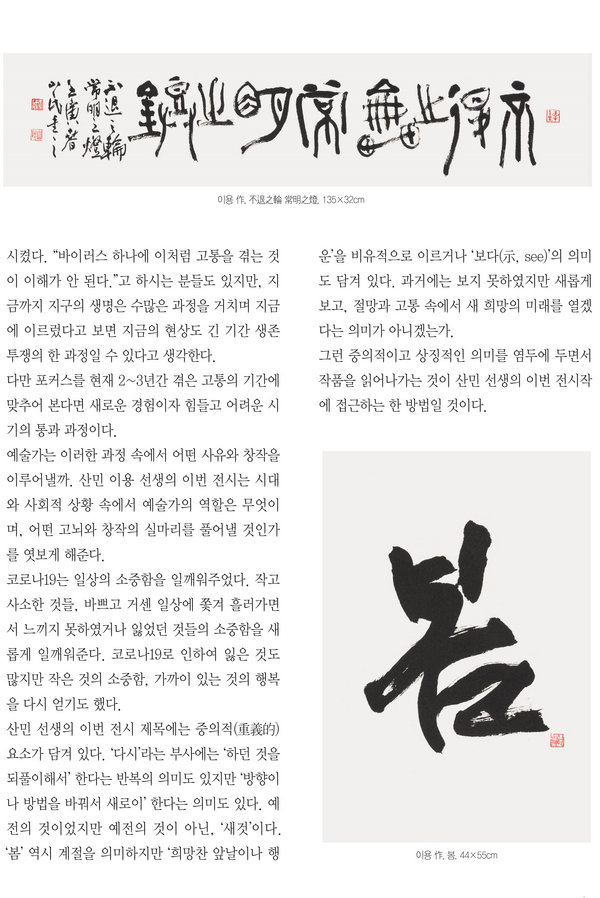 不退之輪
常明之燈
이용 作, 不退之輪 常明之燈, 135×32cm
시켰다. “바이러스 하나에 이처럼 고통을 겪는 것
이 이해가 안 된다.”고 하시는 분들도 있지만, 지
금까지 지구의 생명은 수많은 과정을 거치며 지금
에 이르렀다고 보면 지금의 현상도 긴 기간 생존
투쟁의 한 과정일 수 있다고 생각한다.
다만 포커스를 현재 2~3년간 겪은 고통의 기간에
맞추어 본다면 새로운 경험이자 힘들고 어려운 시
기의 통과 과정이다.
예술가는 이러한 과정 속에서 어떤 사유와 창작을
이루어낼까. 산민 이용 선생의 이번 전시는 시대
와 사회적 상황 속에서 예술가의 역할은 무엇이
며, 어떤 고뇌와 창작의 실마리를 풀어낼 것인가
를 엿보게 해준다.
코로나19는 일상의 소중함을 일깨워주었다. 작고
사소한 것들, 바쁘고 거센 일상에 쫓겨 흘러가면
서 느끼지 못하였거나 잃었던 것들의 소중함을 새
롭게 일깨워준다. 코로나19로 인하여 잃은 것도
많지만 작은 것의 소중함, 가까이 있는 것의 행복
을 다시 얻기도 했다.
산민 선생의 이번 전시 제목에는 중의적(重義的)
요소가 담겨 있다. ‘다시’라는 부사에는 ‘하던 것을
되풀이해서’ 한다는 반복의 의미도 있지만 ‘방향이
나 방법을 바꿔서 새로이’ 한다는 의미도 있다. 예
전의 것이었지만 예전의 것이 아닌, ‘새것’이다.
‘봄’ 역시 계절을 의미하지만 ‘희망찬 앞날이나 행
운’을 비유적으로 이르거나 ‘보다(示, see)’의 의미
도 담겨 있다. 과거에는 보지 못하였지만 새롭게
보고, 절망과 고통 속에서 새 희망의 미래를 열겠
다는 의미가 아니겠는가.
그런 중의적이고 상징적인 의미를 염두에 두면서
작품을 읽어나가는 것이 산민 선생의 이번 전시작
에 접근하는 한 방법일 것이다.
봄
이용 作, 봄, 44×55cm